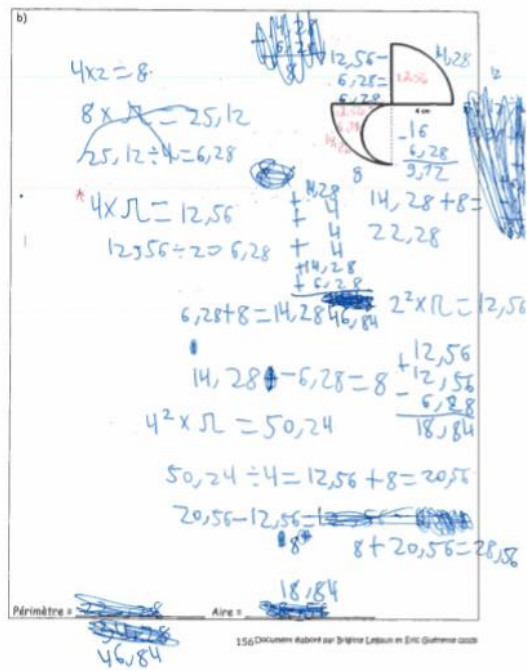 b)
4x2=8
8 x π = 25,12
25,12÷4=6,28
* 4xπ=12,56
12,56÷2=6,28
12,56-
6,28=
6,28
14,28
12,56
4 cm
-16
6,28
9,12
8
14,28
+ 4
4
+ 4
+14,28
+ 6,28
46,84
14,28+8=
22,28
6,28+8=14,28
2²xπ=12,56
14,28-6,28=8
+12,56
12,56
- 6,28
18,84
4²xπ=50,24
50,24÷4=12,56+8=20,56
20,56-12,56=
8
8+20,56=28,56
18,84
Périmètre = Aire =
46,84
156 Document élaboré par Brigitte Lebrun et Eric